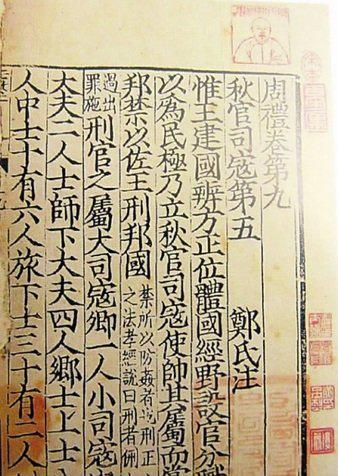 周禮卷第九
秋官司寇第五 鄭氏注
惟王建國辨方正位體國經野設官分職
以為民極乃立秋官司寇使帥其屬而掌
邦禁以佐王刑邦國 禁所以防姦者也刑正
之法孝經說曰刑者侀
過出
罪施 刑官之屬大司寇卿一人小司寇
大夫二人士師下大夫四人鄉士上士
人中士十有六人旅下士三十有二人